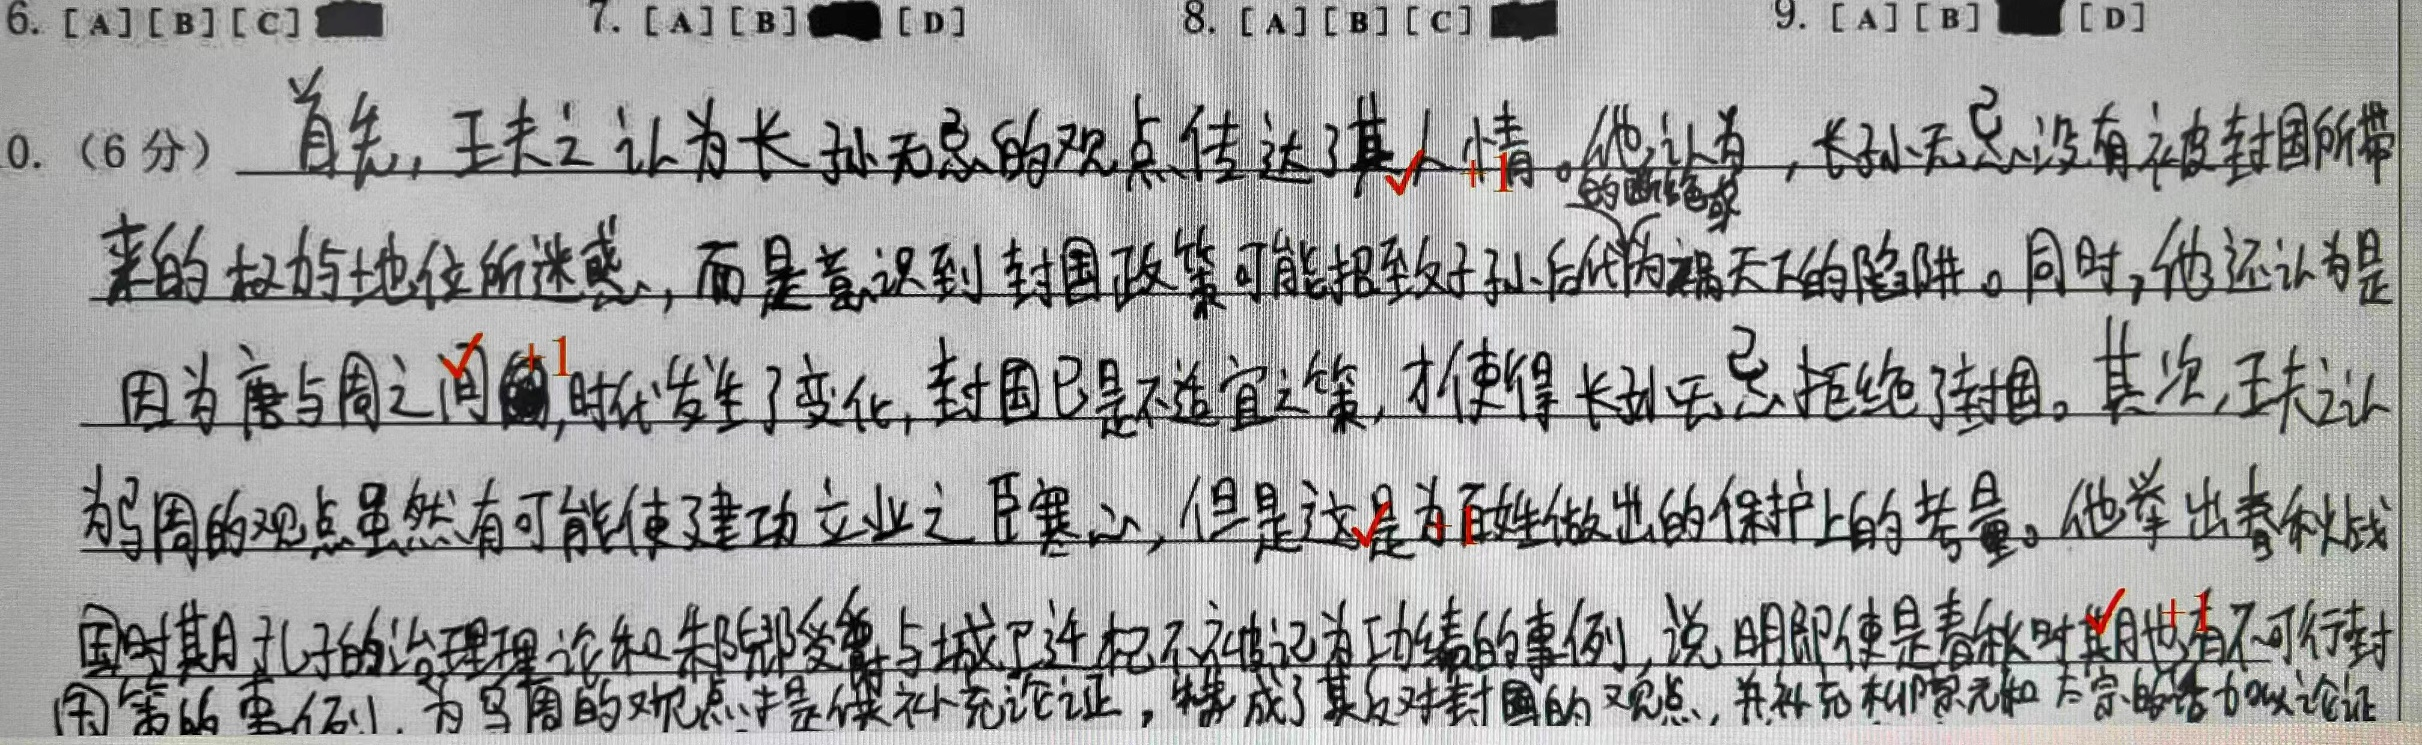 6. [A] [B] [C] 7. [A] [B] [D] 8. [A] [B] [C] 9. [A] [B] [D]
0.（6 分） 首先，王夫之认为长孙无忌的观点传达了其人情。他认为，长孙无忌没有被封国所带
+1
的断绝或
来的权力与地位所迷惑，而是意识到封国政策可能招致子孙后代为祸天下的陷阱。同时，他还认为是
+1
因为唐与周之间，时代发生了变化，封国已是不适宜之策，才使得长孙无忌拒绝了封国。其次，王夫之认
为马周的观点虽然有可能使建功立业之臣寒心，但是这是为百姓做出的保护上的考量。他举出春秋战
+1
国时期孔子的治理理论和邾郧受与城下许杞不被记为功绩的事例，说明即使是春秋时期也有不可行封
+1
国策的事例，为马周的观点提供补充论证，赞成了其反对封国的观点，并补充和宗元和太宗的话加以论证